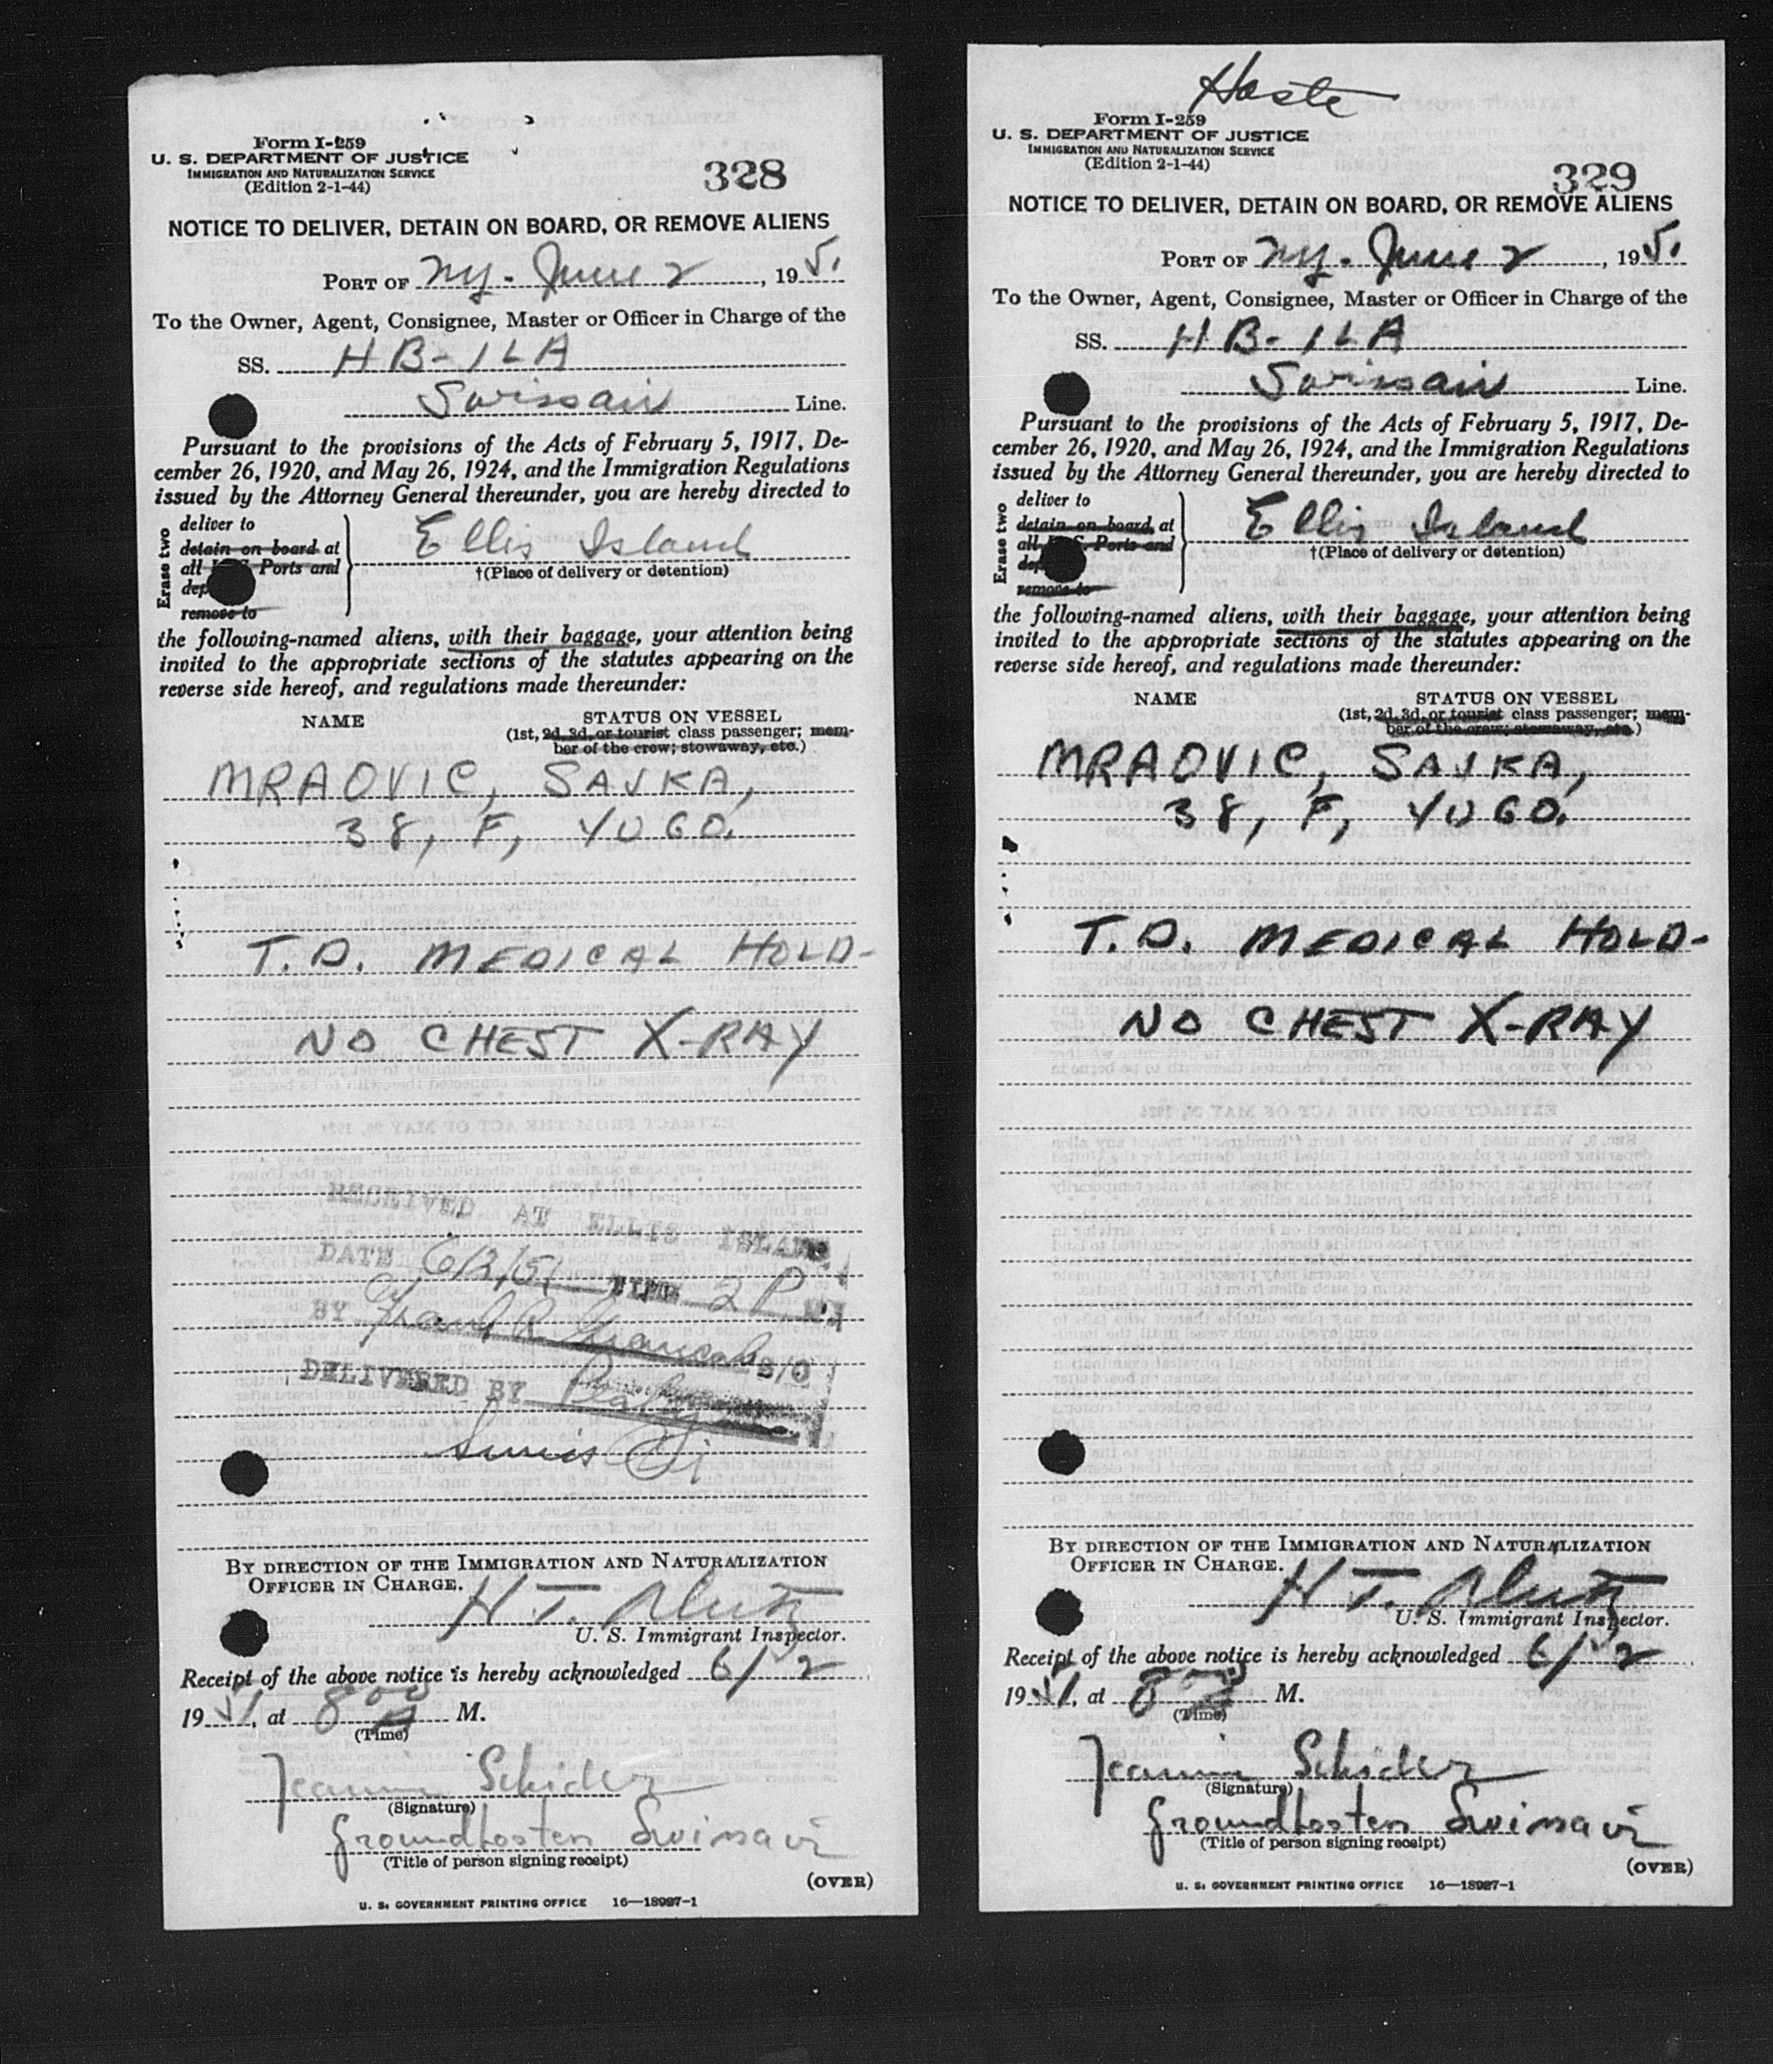 Form I-259
U. S. DEPARTMENT OF JUSTICE
IMMIGRATION AND NATURALIZATION SERVICE
(Edition 2-1-44)
328
NOTICE TO DELIVER, DETAIN ON BOARD, OR REMOVE ALIENS
PORT OF NY. June 2, 1951
To the Owner, Agent, Consignee, Master or Officer in Charge of the
SS. HB-ILA
Swissair Line.
Pursuant to the provisions of the Acts of February 5, 1917, De-
cember 26, 1920, and May 26, 1924, and the Immigration Regulations
issued by the Attorney General thereunder, you are hereby directed to
Erase two
deliver to
detain on board at
all Ports and
remove to
Ellis Island
†(Place of delivery or detention)
the following-named aliens, with their baggage, your attention being
invited to the appropriate sections of the statutes appearing on the
reverse side hereof, and regulations made thereunder:
NAME STATUS ON VESSEL
(1st, 2d, 3d, or tourist class passenger; mem-
ber of the crew; stowaway, etc.)
MRAOVIC, SAVKA,
38, F, YUGO.
T.D. MEDICAL HOLD-
NO CHEST X-RAY
RECEIVED AT ELLIS ISLAND
DATE 6/2/51 TIME 2 P.M.
BY Frank R.
DELIVERED BY
BY DIRECTION OF THE IMMIGRATION AND NATURALIZATION
OFFICER IN CHARGE.
H T.
U. S. Immigrant Inspector.
Receipt of the above notice is hereby acknowledged 6/2
1951, at 8 00 M.
(Time)
Jeannie Schider
(Signature)
Groundhostess Swissair
(Title of person signing receipt)
(OVER)
U. S. GOVERNMENT PRINTING OFFICE 16—18927-1
Haste
Form I-259
U. S. DEPARTMENT OF JUSTICE
IMMIGRATION AND NATURALIZATION SERVICE
(Edition 2-1-44)
329
NOTICE TO DELIVER, DETAIN ON BOARD, OR REMOVE ALIENS
PORT OF NY. June 2, 1951
To the Owner, Agent, Consignee, Master or Officer in Charge of the
SS. HB-ILA
Swissair Line.
Pursuant to the provisions of the Acts of February 5, 1917, De-
cember 26, 1920, and May 26, 1924, and the Immigration Regulations
issued by the Attorney General thereunder, you are hereby directed to
Erase two
deliver to
detain on board at
all Ports and
remove to
Ellis Island
†(Place of delivery or detention)
the following-named aliens, with their baggage, your attention being
invited to the appropriate sections of the statutes appearing on the
reverse side hereof, and regulations made thereunder:
NAME STATUS ON VESSEL
(1st, 2d, 3d, or tourist class passenger; mem-
ber of the crew; stowaway, etc.)
MRAOVIC, SAVKA,
38, F, YUGO.
T.D. MEDICAL HOLD-
NO CHEST X-RAY
BY DIRECTION OF THE IMMIGRATION AND NATURALIZATION
OFFICER IN CHARGE.
H T.
U. S. Immigrant Inspector.
Receipt of the above notice is hereby acknowledged 6/2
1951, at 8 M.
(Time)
Jeannie Schider
(Signature)
Groundhostess Swissair
(Title of person signing receipt)
(OVER)
U. S. GOVERNMENT PRINTING OFFICE 16—18927-1